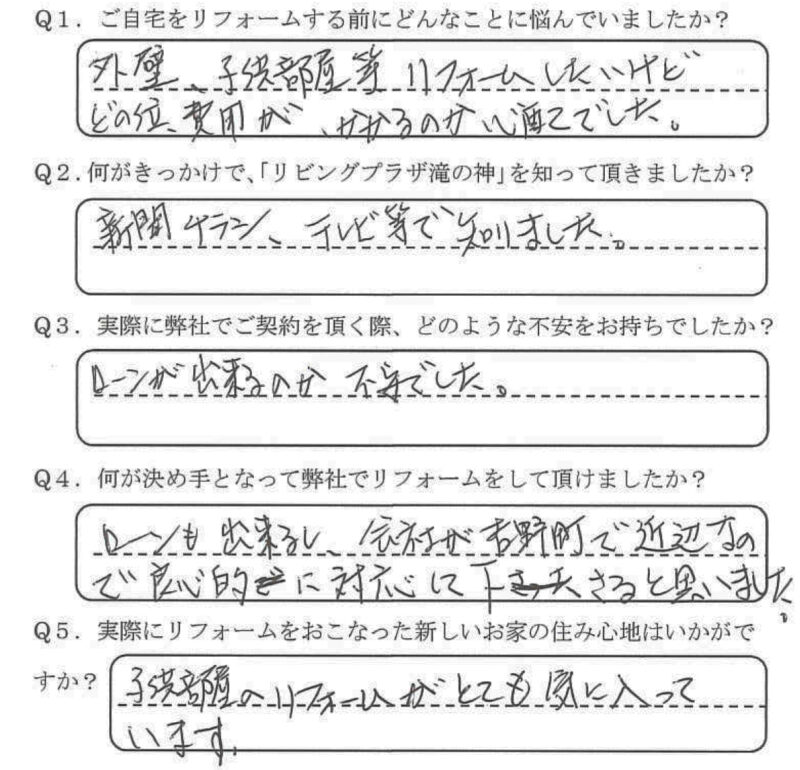 Q1. ご自宅をリフォームする前にどんなことに悩んでいましたか?
外壁、子供部屋等リフォームしたいけど
どの位、費用が、かかるのか心配でした。
Q2.何がきっかけで、「リビングプラザ滝の神」を知って頂きましたか?
新聞チラシ、テレビ等で知りました。
Q3. 実際に弊社でご契約を頂く際、どのような不安をお持ちでしたか?
ローンが出来るのか不安でした。
Q4. 何が決め手となって弊社でリフォームをして頂けましたか?
ローンも出来るし、会社が吉野町で近辺なの
で良心的に対応して下さると思いました。
Q5. 実際にリフォームをおこなった新しいお家の住み心地はいかがで
すか?
子供部屋のリフォームがとても気に入って
います。